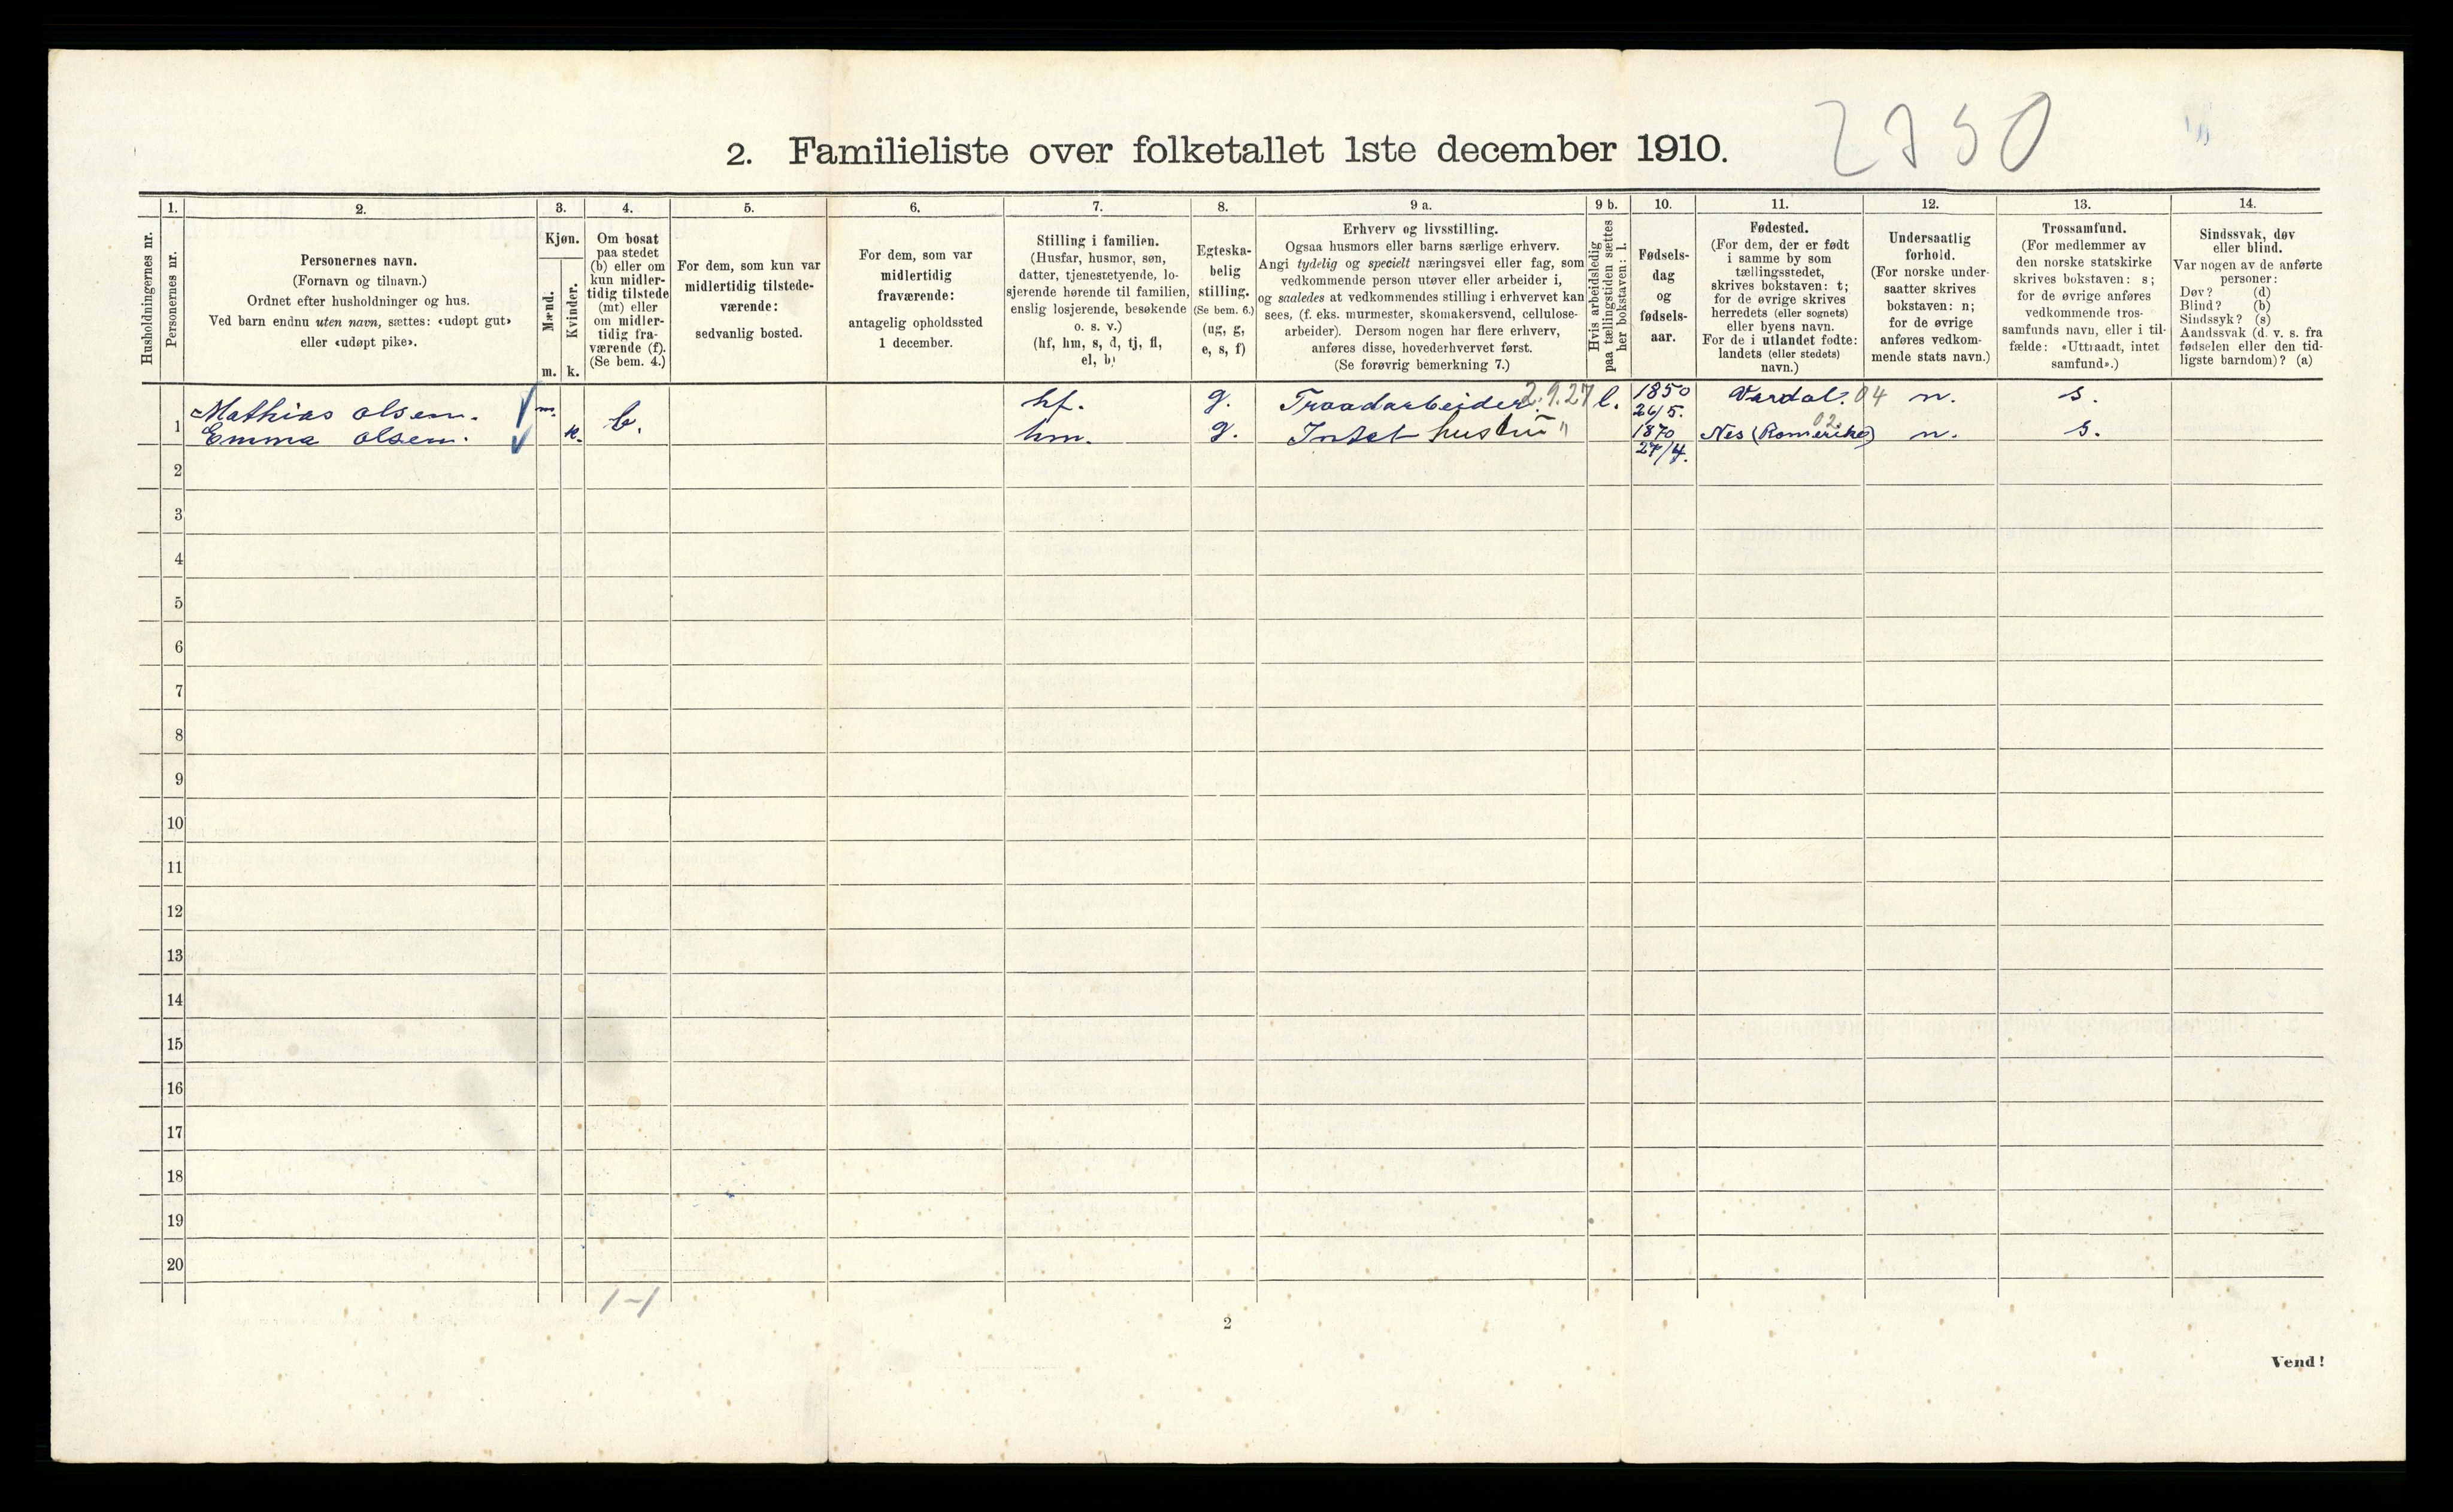 2750
2. Familieliste over folketallet 1ste december 1910.
1. 2. 3. 4. 5. 6. 7. 8. 9 a. 9 b. 10. 11. 12. 13. 14.
Husholdningernes nr.
Personernes nr.
Personernes navn.
(Fornavn og tilnavn.)
Ordnet efter husholdninger og hus.
Ved barn endnu uten navn, sættes: «udøpt gut»
eller «udøpt pike».
Kjøn.
Mænd.
Kvinder.
m. k.
Om bosat
paa stedet
(b) eller om
kun midler-
tidig tilstede
(mt) eller
om midler-
tidig fra-
værende (f).
(Se bem. 4.)
For dem, som kun var
midlertidig tilstede-
værende:
sedvanlig bosted.
For dem, som var
midlertidig
fraværende:
antagelig opholdssted
1 december.
Stilling i familien.
(Husfar, husmor, søn,
datter, tjenestetyende, lo-
sjerende hørende til familien,
enslig losjerende, besøkende
o. s. v.)
(hf, hm, s, d, tj, fl,
el, b)
Egteska-
belig
stilling.
(Se bem. 6.)
(ug, g,
e, s, f)
Erhverv og livsstilling.
Ogsaa husmors eller barns særlige erhverv.
Angi tydelig og specielt næringsvei eller fag, som
vedkommende person utøver eller arbeider i,
og saaledes at vedkommendes stilling i erhvervet kan
sees, (f. eks. murmester, skomakersvend, cellulose-
arbeider). Dersom nogen har flere erhverv,
anføres disse, hovederhvervet først.
(Se forøvrig bemerkning 7.)
Hvis arbeidsledig
paa tællingstiden sættes
her bokstaven: l.
Fødsels-
dag
og
fødsels-
aar.
Fødested.
(For dem, der er født
i samme by som
tællingsstedet,
skrives bokstaven: t;
for de øvrige skrives
herredets (eller sognets)
eller byens navn.
For de i utlandet fødte:
landets (eller stedets)
navn.)
Undersaatlig
forhold.
(For norske under-
saatter skrives
bokstaven: n;
for de øvrige
anføres vedkom-
mende stats navn.)
Trossamfund.
(For medlemmer av
den norske statskirke
skrives bokstaven: s;
for de øvrige anføres
vedkommende tros-
samfunds navn, eller i til-
fælde: «Uttraadt, intet
samfund».)
Sindssvak, døv
eller blind.
Var nogen av de anførte
personer:
Døv? (d)
Blind? (b)
Sindssyk? (s)
Aandssvak (d. v. s. fra
fødselen eller den tid-
ligste barndom)? (a)
Mathias olsen. m. hf. g. Traadarbeider. 2.9.27 l. 1850 26/5. Vardal. 04 n. s.
1 Emma olsen. k. b. hm. g. Intet hustru " 1870 27/4. Nes (Romerike) 02 n. s.
2
3
4
5
6
7
8
9
10
11
12
13
14
15
16
17
18
19
20
1-1
2
Vend!